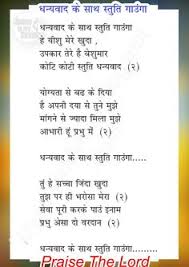 धन्यवाद के साथ स्तुति गाउंगा
धन्यवाद के साथ स्तुति गाउंगा
हे यीशु मेरे खुदा ,
उपकार तेरे है बेशुमार
कोटी कोटी स्तुति धन्यवाद (२)
योग्यता से बढ के दिया
है अपनी दया से तुने मुझे
मांगने से ज्यादा मिला मुझे
आभारी हूं प्रभु में (२)
धन्यवाद के साथ स्तुति गाउंगा.....
तुं है सच्चा जिंदा खुदा
तुझ पर ही भरोसा मेरा (२)
सेवा पूरी करके पाउं इनाम
प्रभु ऐसा दो वरदान (२)
धन्यवाद के साथ स्तुति गाउंगा.........
Praise The Lord